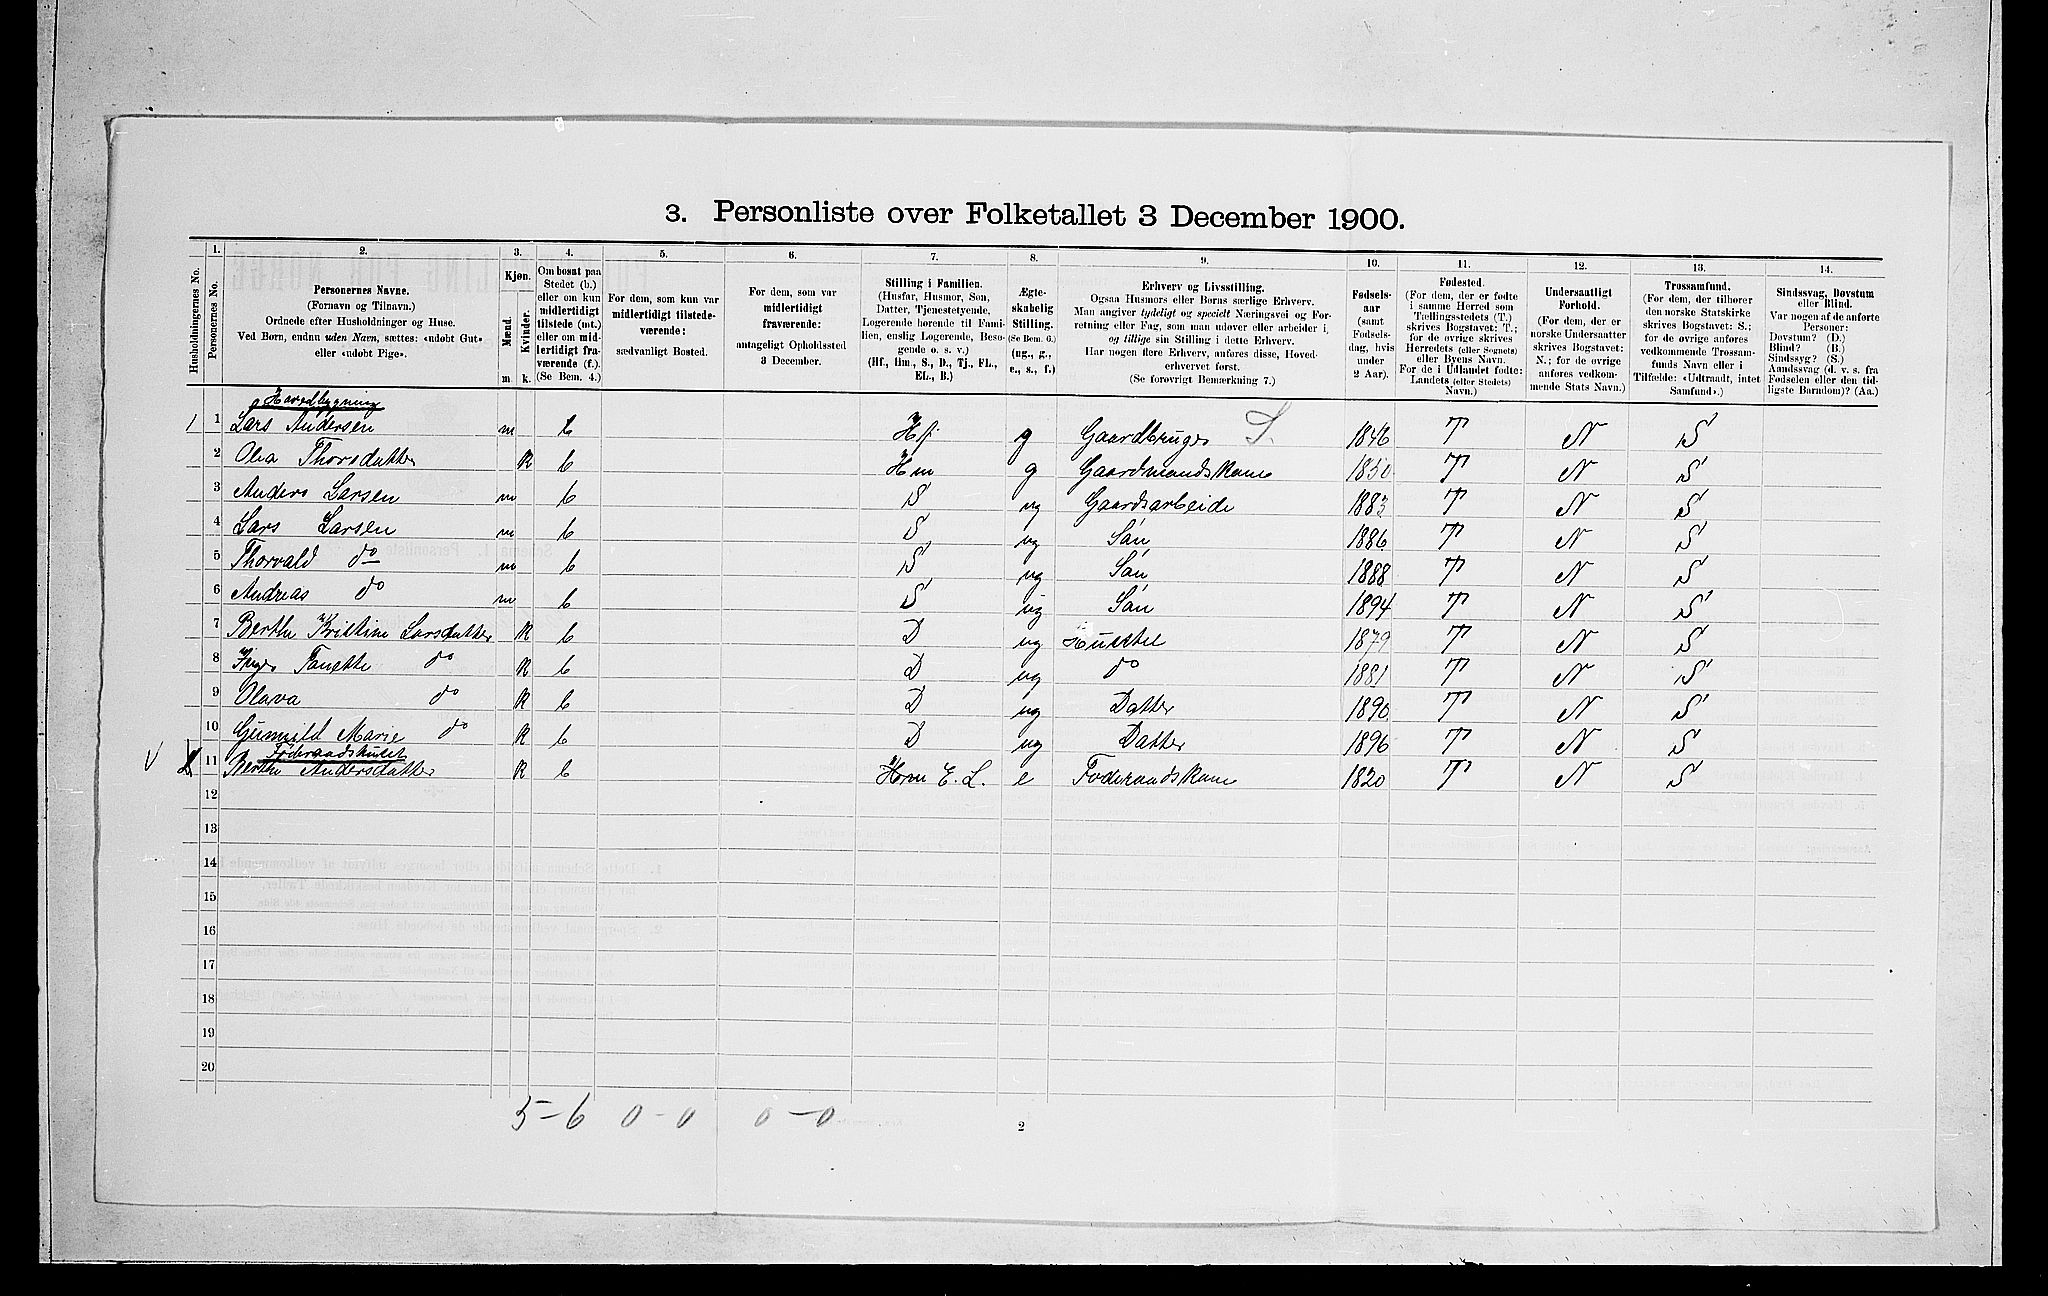 3. Personliste over Folketallet 3 December 1900.
Husholdningernes No.
1. Personernes No.
2. Personernes Navne. (Fornavn og Tilnavn.) Ordnede efter Husholdninger og Huse. Ved Børn, endnu uden Navn, sættes: «udøbt Gut» eller «udøbt Pige».
3. Kjøn. Mænd. m. Kvinder. k.
4. Om bosat paa Stedet (b.) eller om kun midlertidigt tilstede (mt.) eller om midlertidigt fraværende (f.). (Se Bem. 4.)
5. For dem, som kun var midlertidigt tilstedeværende: sædvanligt Bosted.
6. For dem, som var midlertidigt fraværende: antageligt Opholdssted 3 December.
7. Stilling i Familien. (Husfar, Husmor, Søn, Datter, Tjenestetyende, Logerende hørende til Familien, enslig Logerende, Besøgende o. s. v.) (Hf., Hm., S., D., Tj., FL., EL., B.)
8. Ægteskabelig Stilling. (Se Bem. 6.) (ug., g., e., s., f.)
9. Erhverv og Livsstilling. Ogsaa Husmors eller Børns særlige Erhverv. Man angiver tydeligt og specielt Næringsvei og Forretning eller Fag, som man udøver eller arbeider i, og tillige sin Stilling i dette Erhverv. Har nogen flere Erhverv, anføres disse, Hovederhvervet først. (Se forøvrigt Bemærkning 7.)
10. Fødselsaar (samt Fødselsdag, hvis under 2 Aar).
11. Fødested. (For dem, der er fødte i samme Herred som Tællingsstedets (T.) skrives Bogstavet: T.; for de øvrige skrives Herredets (eller Sognets) eller Byens Navn. For de i Udlandet fødte: Landets (eller Stedets) Navn.)
12. Undersaatligt Forhold. (For dem, der er norske Undersaatter skrives Bogstavet: N.; for de øvrige anføres vedkommende Stats Navn.)
13. Trossamfund. (For dem, der tilhører den norske Statskirke skrives Bogstavet: S.; for de øvrige anføres vedkommende Trossamfunds Navn eller i Tilfælde: «Udtraadt, intet Samfund».)
14. Sindssvag, Døvstum eller Blind. Var nogen af de anførte Personer: Døvstum? (D.) Blind? (B.) Sindssyg? (S.) Aandssvag (d. v. s. fra Fødselen eller den tidligste Barndom)? (Aa.)
Hovedbygning
1 1 Lars Andersen m b Hf g Gaardbruger S. 1846 T N S
2 Olea Thorsdatter k b Hm g Gaardmandskone 1850 T N S
3 Anders Larsen m b S ug Gaardsarbeide 1883 T N S
4 Lars Larsen m b S ug Søn 1886 T N S
5 Thorvald do m b S ug Søn 1888 T N S
6 Andreas do m b S ug Søn 1894 T N S
7 Berthe Kristine Larsdatter k b D ug Husstel 1879 T N S
8 Inger Tanette do k b D ug do 1881 T N S
9 Olava do k b D ug Datter 1890 T N S
10 Gunnild Marie do k b D ug Datter 1896 T N S
Føderaadshuset
2 11 Berthe Andersdatter k b Hm E. L. e Føderaadskone 1820 T N S
12
13
14
15
16
17
18
19
20
5-6 0-0 0-0
2